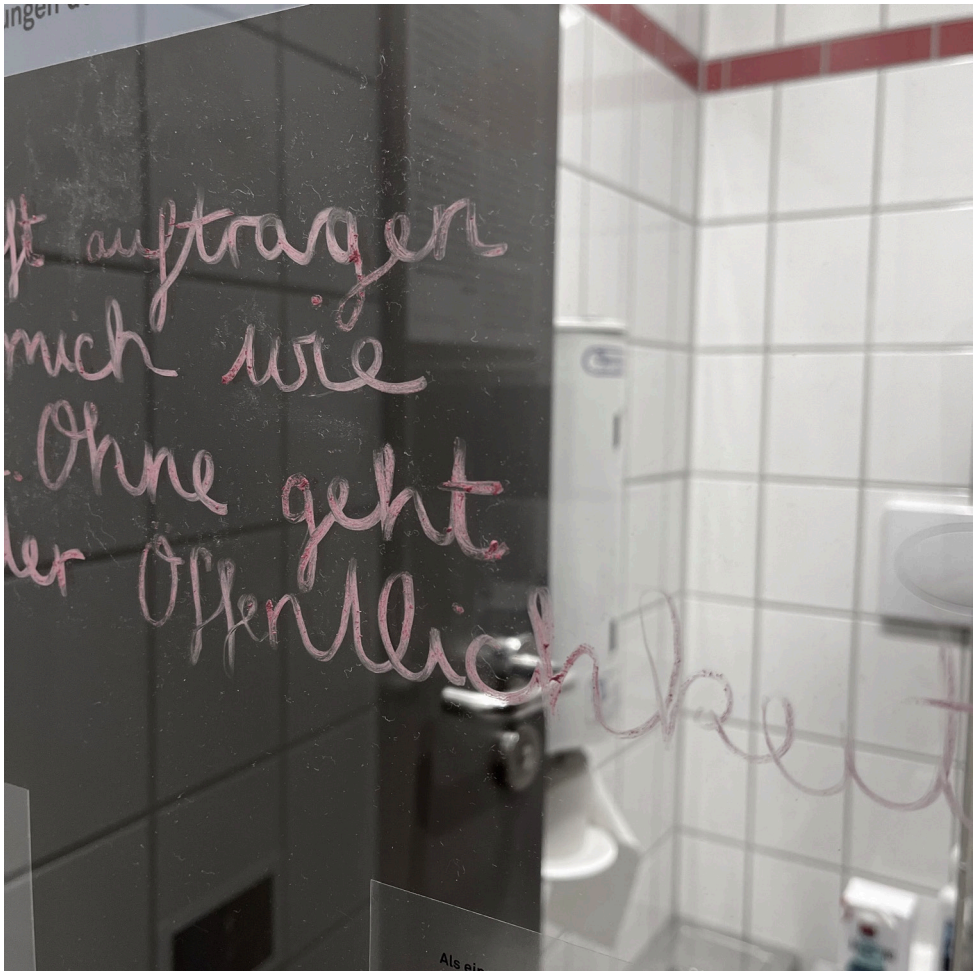 auftragen
mich wie
Ohne geht
der Öffentlichkeit
Als ein